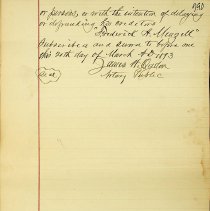 190
or persons, or with the intention of delaying
or defrauding his creditors
"Frederick A. Mengell"
Subscribed and sworn to before me
this 20th day of March A.D. 1893
James W. Ogden
Seal
Notary Public